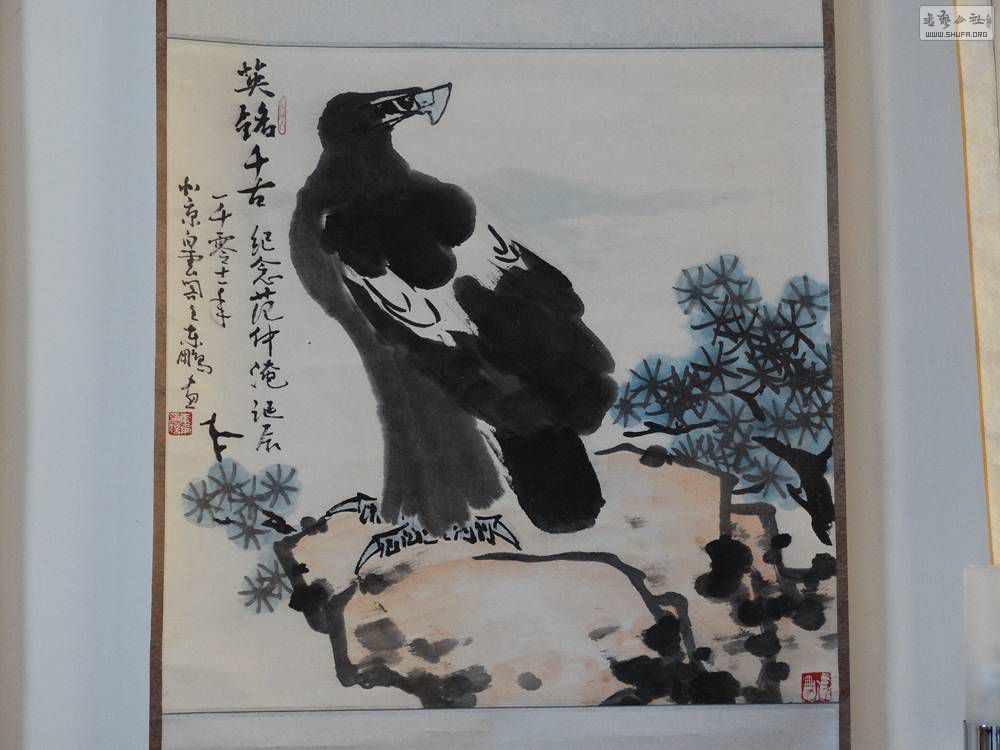 英铭千古
纪念范仲淹诞辰
一千零十一年
北京皇云阁主东鹏画
书艺公社
WWW.SHUFA.ORG